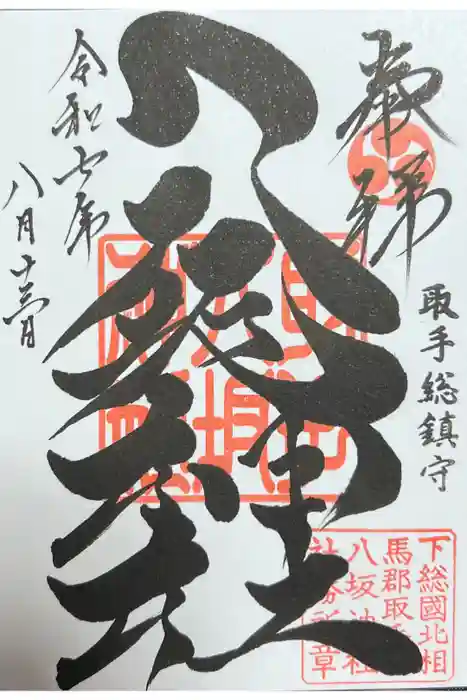 奉拝
取手総鎮守
八坂神社
令和七年
八月十三日
下総國北相
馬郡取手
八坂神社
社務所章